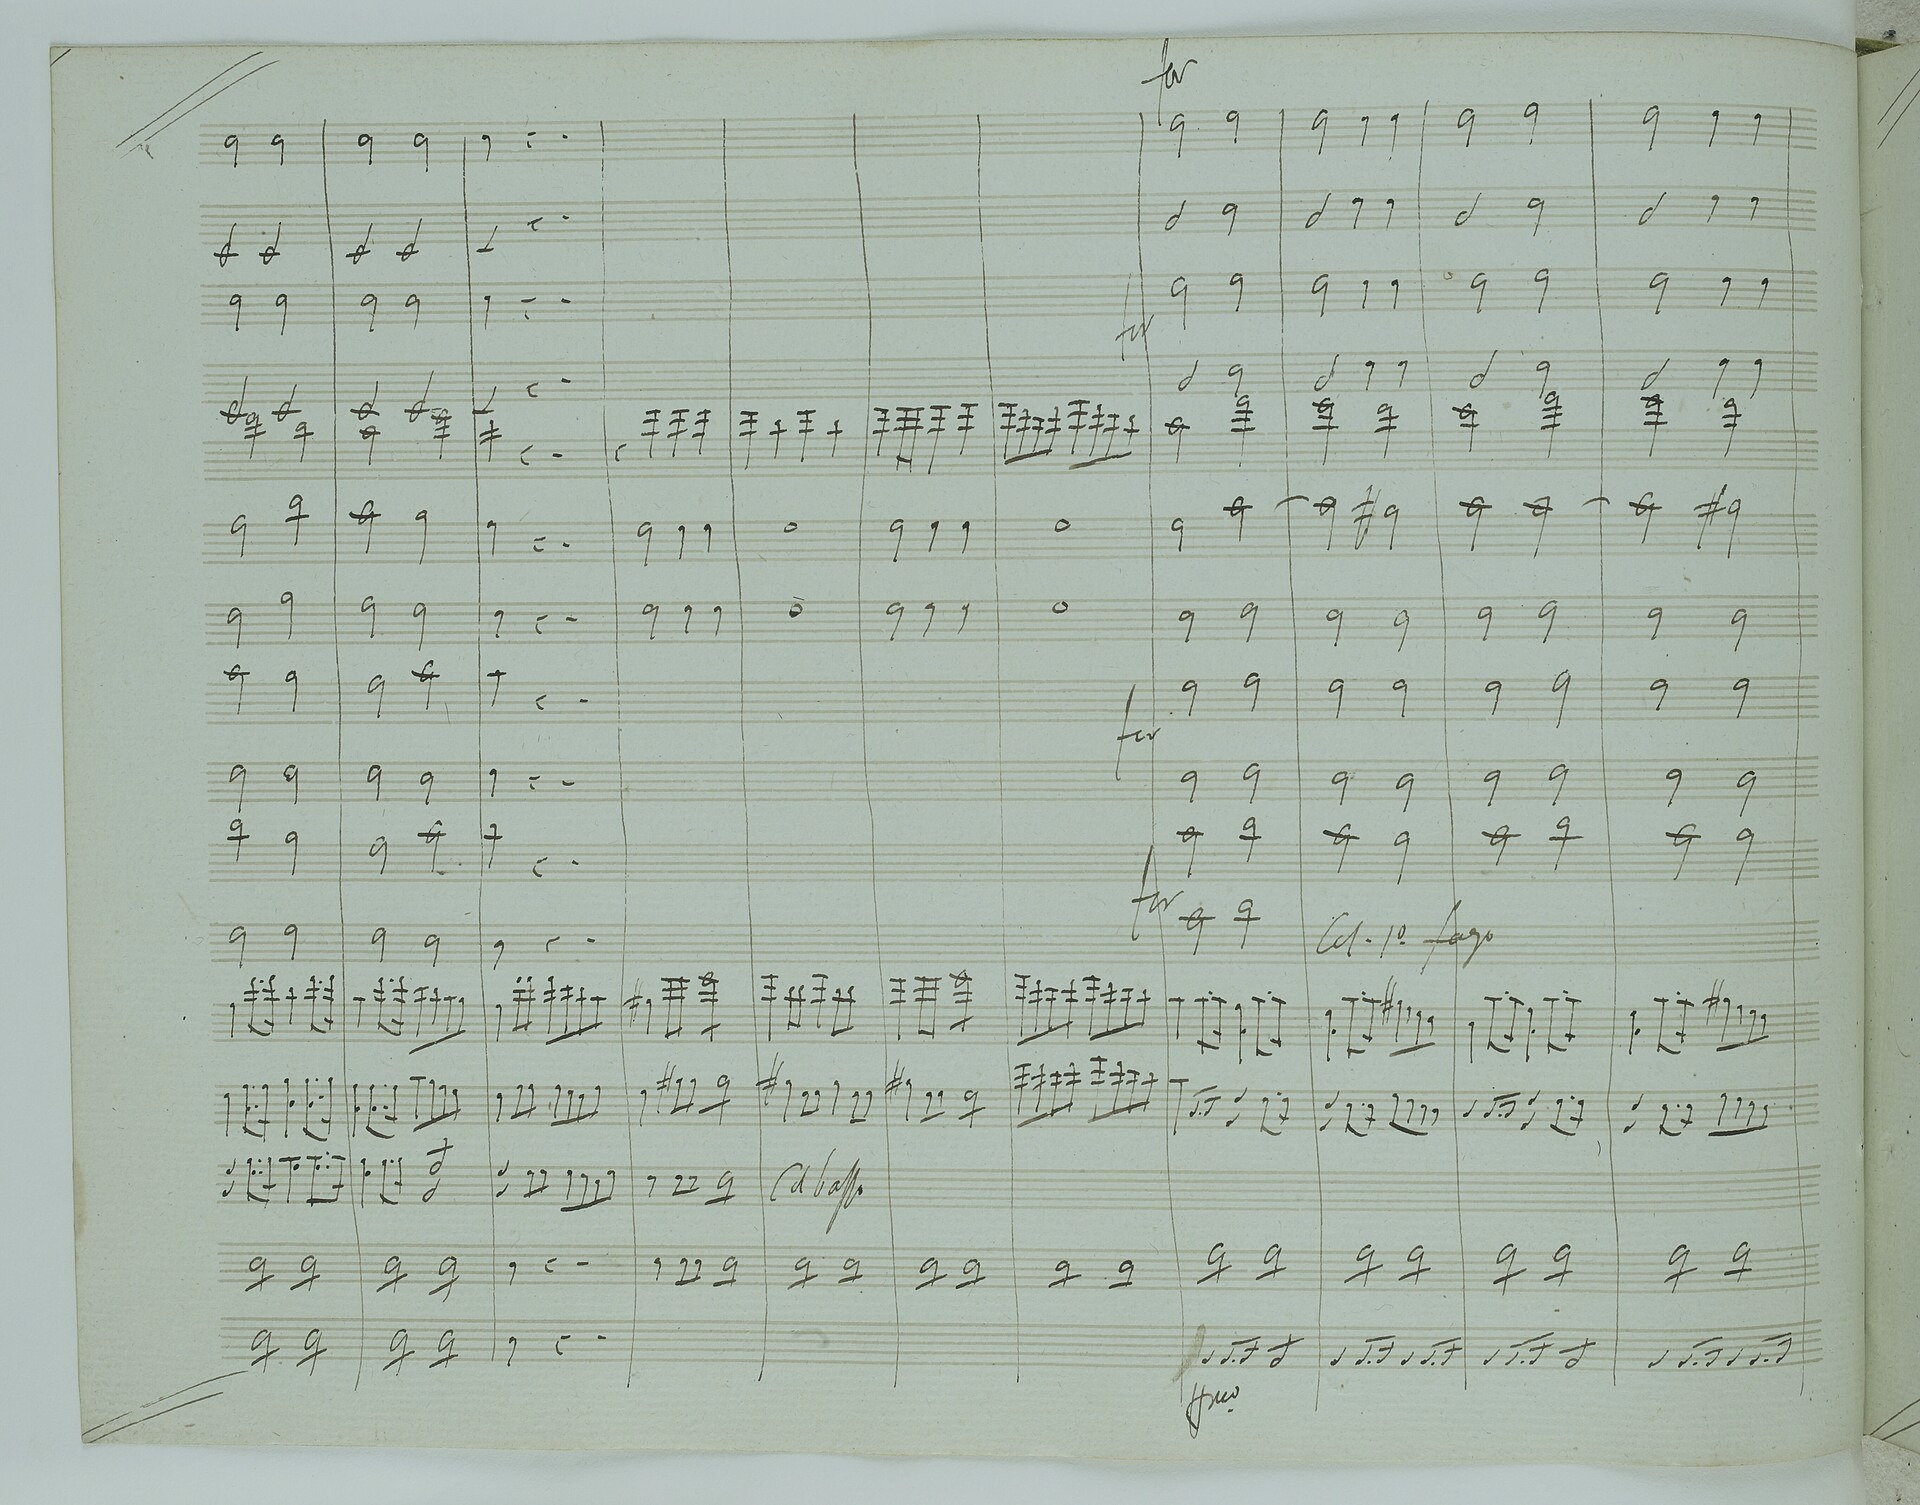 for
for
for
for
Col. 1º fago
Col basso